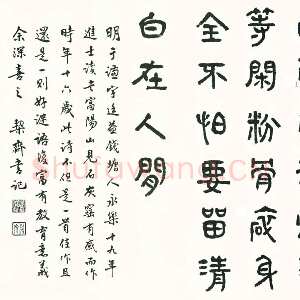 等閑粉骨碎身
全不怕要留清
白在人間
明于谦字廷益錢塘人永樂十九年
進士讀書富陽山見石灰窑有感而作
時年十六歲此诗不但是一首佳作且
還是一则好谜语復富有教育意義
余深喜之 契齋書记